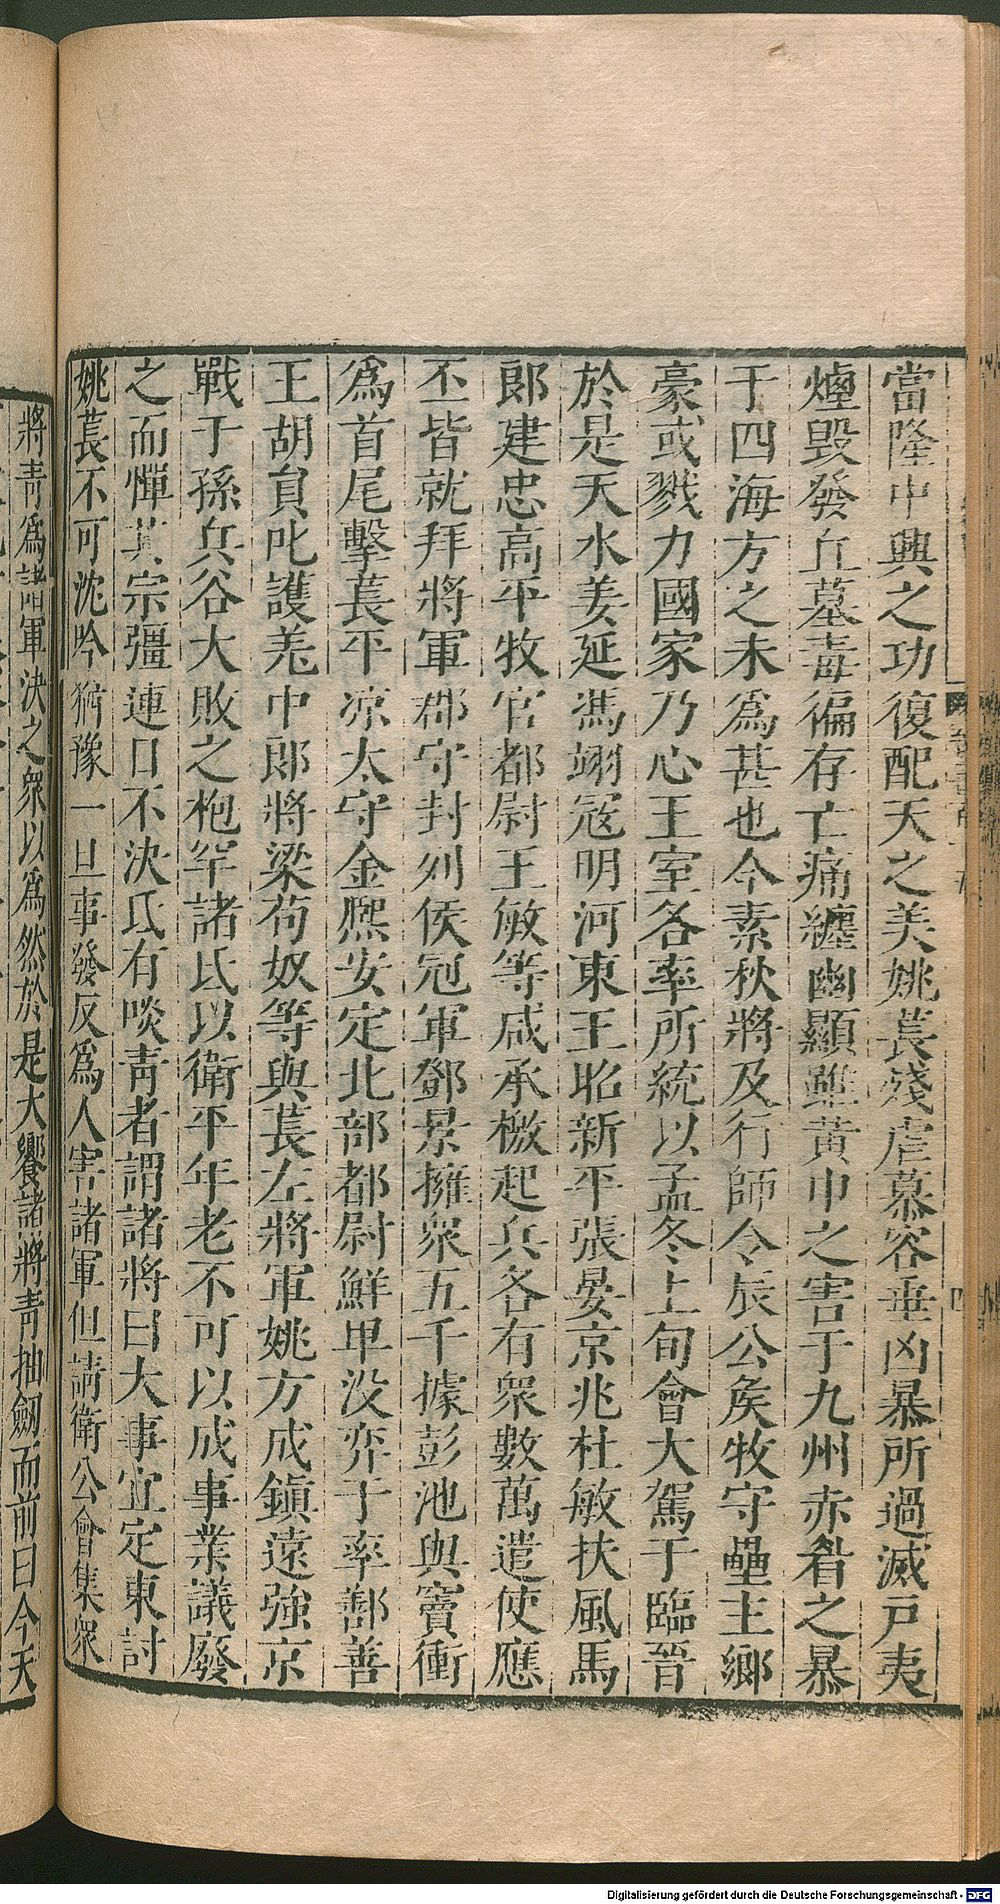 當隆中興之功復配天之美姚萇殘虐慕容垂凶暴所過滅戸夷
煙毀發丘墓毒徧存亡痛纏幽顯雖黃巾之害于九州赤眉之暴
于四海方之未爲甚也今素秋將及行師令辰公侯牧守壘主鄉
豪或戮力國家乃心王室各率所統以孟冬上旬會大駕于臨晉
於是天水姜延馮翊寇明河東王昭新平張晏京兆杜敏扶風馬
郎建忠高平牧官都尉王敏等咸承檄起兵各有衆數萬遣使應
丕皆就拜將軍郡守封列侯冠軍鄧景擁衆五千據彭池與竇衝
爲首尾擊萇平凉太守金熈安定北部都尉鮮卑没弈于率鄯善
王胡員叱護羌中郎將梁苟奴等與萇左將軍姚方成鎮遠強京
戰于孫丘谷大敗之枹罕諸氐以衛平年老不可以成事業議廢
之而憚其宗彊連日不決氐有啖青者謂諸將曰大事宜定東討
姚萇不可沈吟猶豫一旦事發反爲人害諸軍但請衛公會集衆
將青爲諸軍決之衆以爲然於是大饗諸將青抽劒而前曰今天
Digitalisierung gefördert durch die Deutsche Forschungsgemeinschaft - DFG